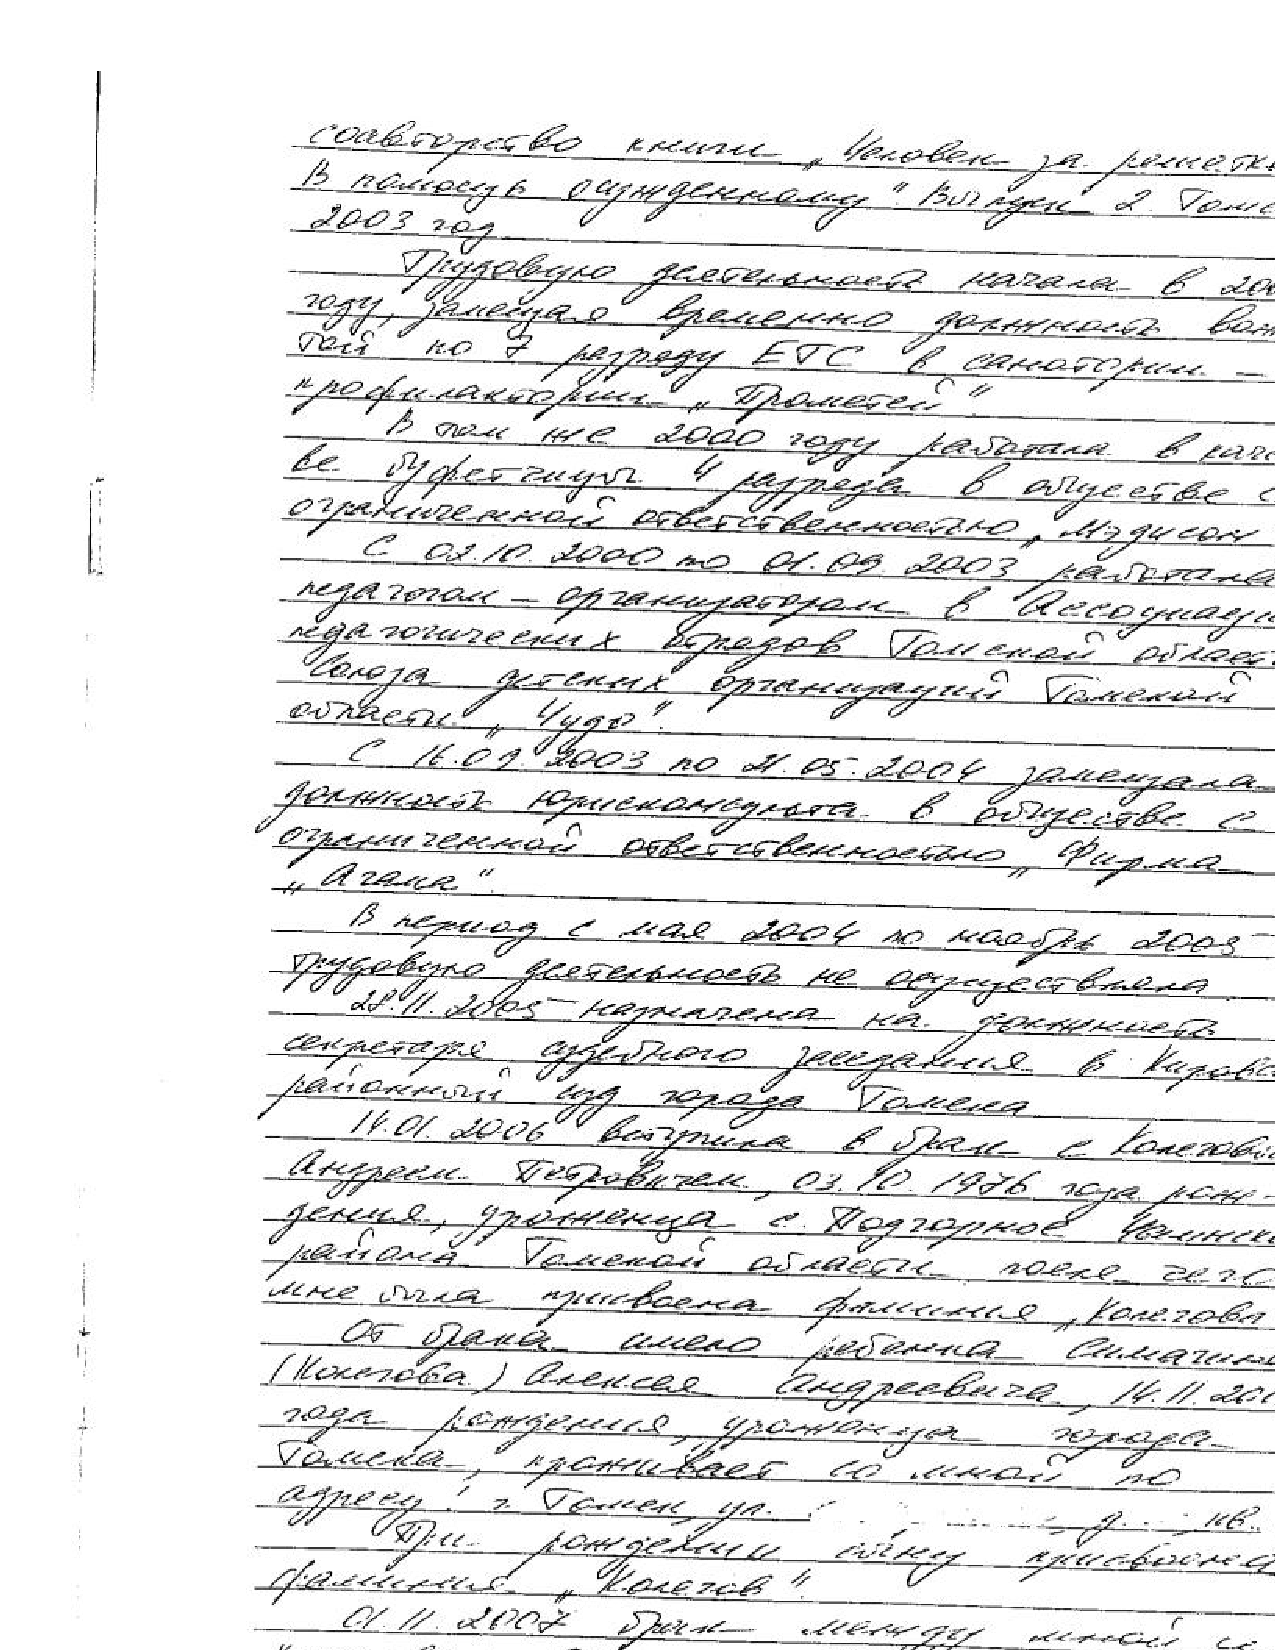 соавторство книги „Человек за решетк
В помощь осужденному". Выпуск 2. Томс
2003 год.
Трудовую деятельность начала в 200
году, замещая временно должность вож
той по 7 разряду ЕТС в санатории –
профилактории „Прометей".
В том же 2000 году работала в каче
ве буфетчицы 4 разряда в обществе с
ограниченной ответственностью „Мэдисон
С 02.10.2000 по 01.09.2003 работала
педагогом – организатором в Ассоциаци
педагогических отрядов Томской област
Союза детских организаций Томской
области „Чудо".
С 16.09.2003 по 21.05.2004 замещала
должность юрисконсульта в обществе с
ограниченной ответственностью „Фирма
„Агама".
В период с мая 2004 по ноябрь 2005
трудовую деятельность не осуществляла
28.11.2005 назначена на должность
секретаря судебного заседания в Кировс
районный суд города Томска
14.01.2006 вступила в брак с Колеговы
Андреем Петровичем, 03.10.1976 года рож-
дения, уроженца с. Подгорное Чаинск
района Томской области после чего
мне была присвоена фамилия „Колегова
От брака имею ребенка Симачк
(Колегова) Алексея Андреевича, 14.11.200
года рождения, уроженца города
Томска, проживает со мной по
адресу: г. Томск, ул. д. кв.
При рождении сыну присвоена
фамилия „Колегов".
01.11.2007 брак между мной и